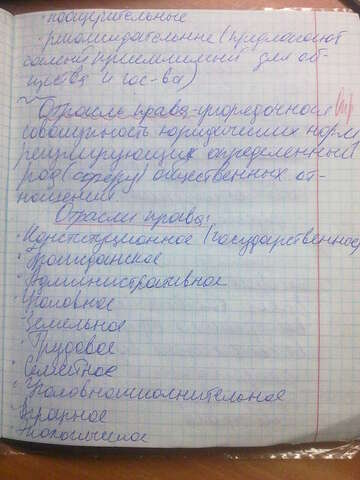 · поощрительные
· рекомендательные (предлагают
самый приемлемый для об-
щества и гос-ва)
Отрасль права - упорядоченная
совокупность юридических норм
регулирующих определенный
род (сферу) общественных от-
ношений.
Отрасли права:
· Конституционное (государственное)
· Гражданское
· Административное
· Уголовное
· Земельное
· Трудовое
· Семейное
· Уголовноисполнительное
· Аграрное